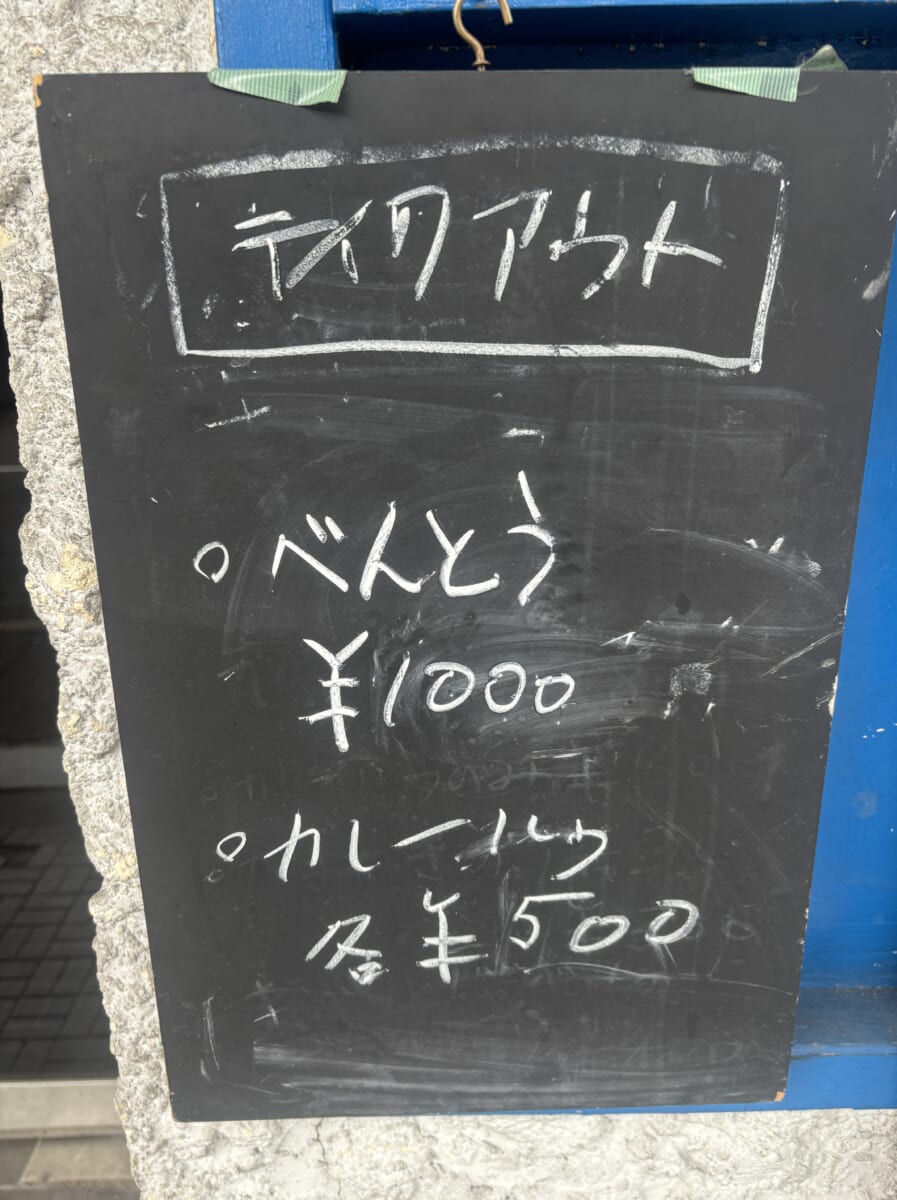 テイクアウト
○べんとう
¥1000
○カレールゥ
各¥500